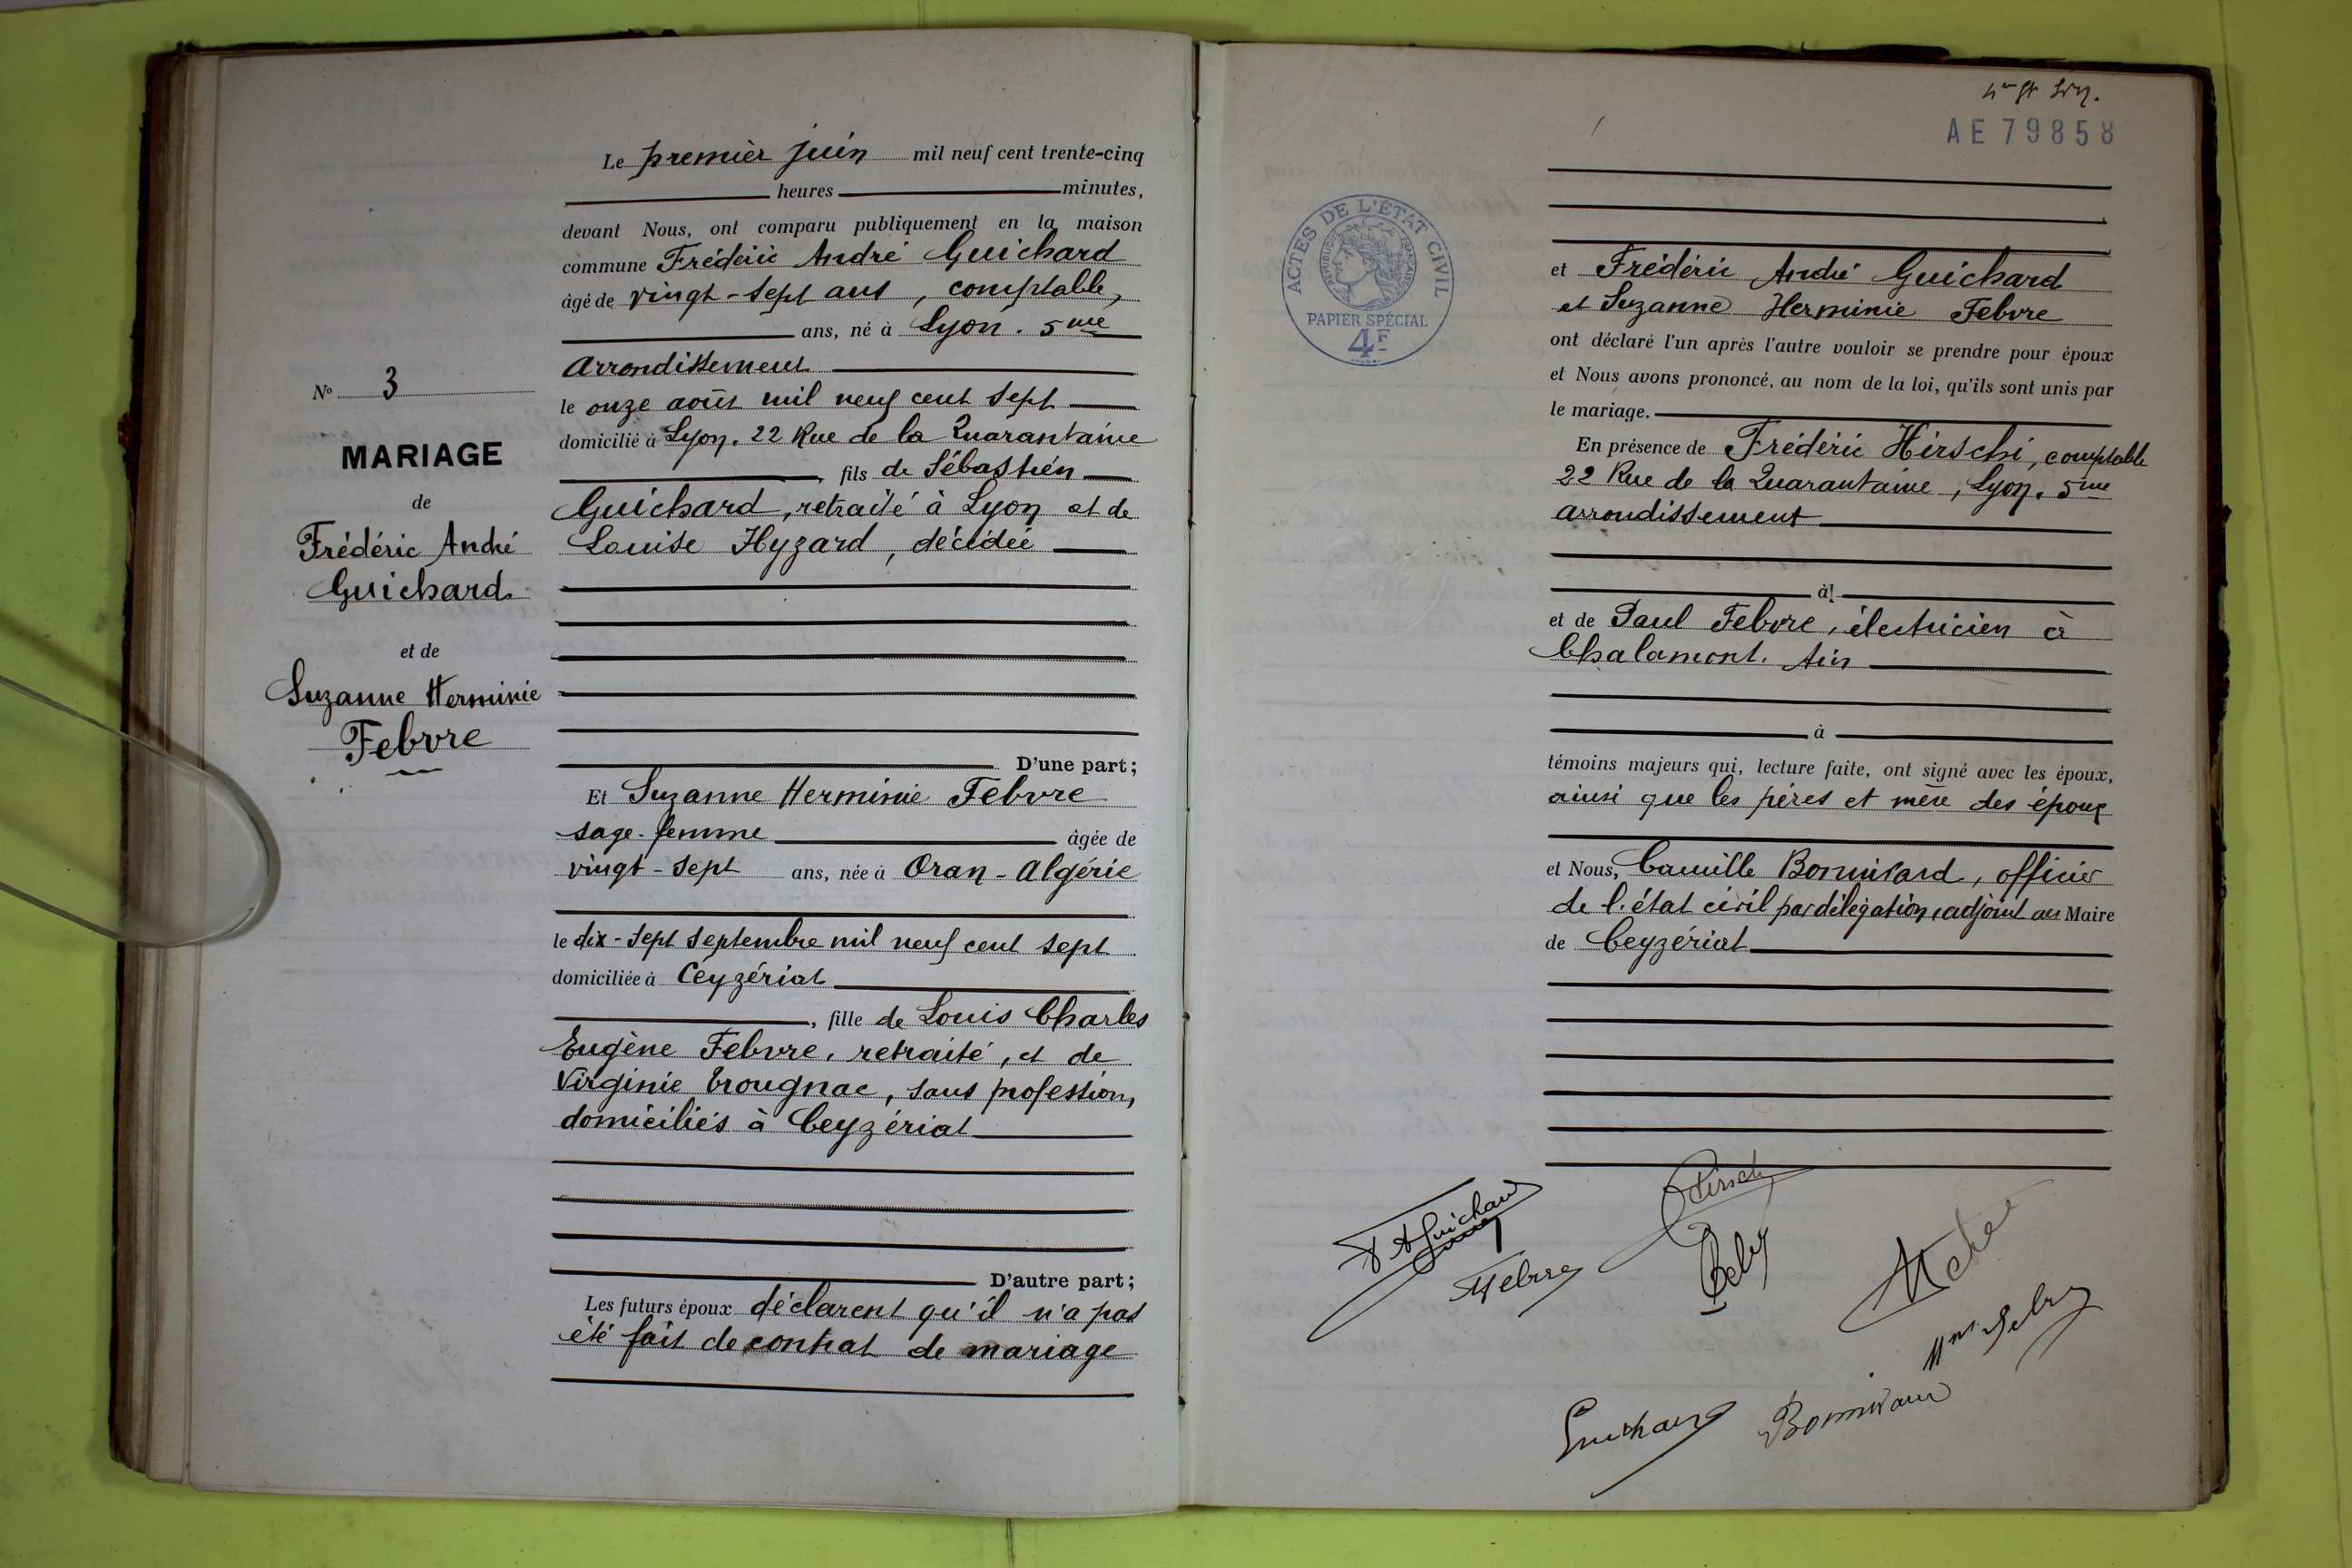 Le premier juin mil neuf cent trente-cinq
heures minutes,
devant Nous, ont comparu publiquement en la maison
commune Frédéric André Guichard
âgé de vingt-sept ans, comptable,
ans, né à Lyon. 5me
arrondissement
le onze août mil neuf cent sept
domicilié à Lyon. 22 Rue de la Quarantaine
, fils de Sébastien
Guichard, retraité à Lyon et de
Louise Hyzard, décédée
D'une part;
Et Suzanne Herminie Febvre
sage-femme âgée de
vingt-sept ans, née à Oran-Algérie
le dix-sept septembre mil neuf cent sept
domiciliée à Ceyzériat
, fille de Louis Charles
Eugène Febvre, retraité, et de
Virginie Trougnac, sans profession,
domiciliés à Ceyzériat
D'autre part;
Les futurs époux déclarent qu'il n'a pas
été fait de contrat de mariage
No 3
MARIAGE
de
Frédéric André
Guichard
et de
Suzanne Herminie
Febvre
AE 79858
ACTES DE L'ÉTAT CIVIL
RÉPUBLIQUE FRANÇAISE
PAPIER SPÉCIAL
4F
et Frédéric André Guichard
et Suzanne Herminie Febvre
ont déclaré l'un après l'autre vouloir se prendre pour époux
et Nous avons prononcé, au nom de la loi, qu'ils sont unis par
le mariage.
En présence de Frédéric Hirschi, comptable
22 Rue de la Quarantaine, Lyon. 5me
arrondissement
à
et de Paul Febvre, électricien à
Chalamont. Ain
à
témoins majeurs qui, lecture faite, ont signé avec les époux,
ainsi que les pères et mère des époux
et Nous, Camille Bonnivard, officier
de l'état civil par délégation, adjoint au Maire
de Ceyzériat
FAGuichard
Hirschi
Febvre
Mme Febvre
Guichard
Bonnivard